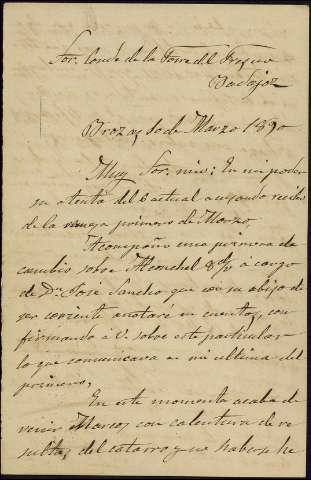 Sor. Conde de la Torre del Fresno
Badajoz
Brozas 10 de Marzo 1890
Muy Sor. mio: En mi poder
su atenta del 6 actual acusando recibo
de la primero de Marzo
Acompaño una primera de
cambio sobre Alconchel 8 d/v á cargo
de Dn José Sancho que con su abijo de
ser corriente anotaré en cuenta, con
firmando á V. sobre este particular
lo que comunicava en mi ultima del
primero,
En este momento acaba de
venir Marcos con calentura de re
sultas del catarro y no haberse he